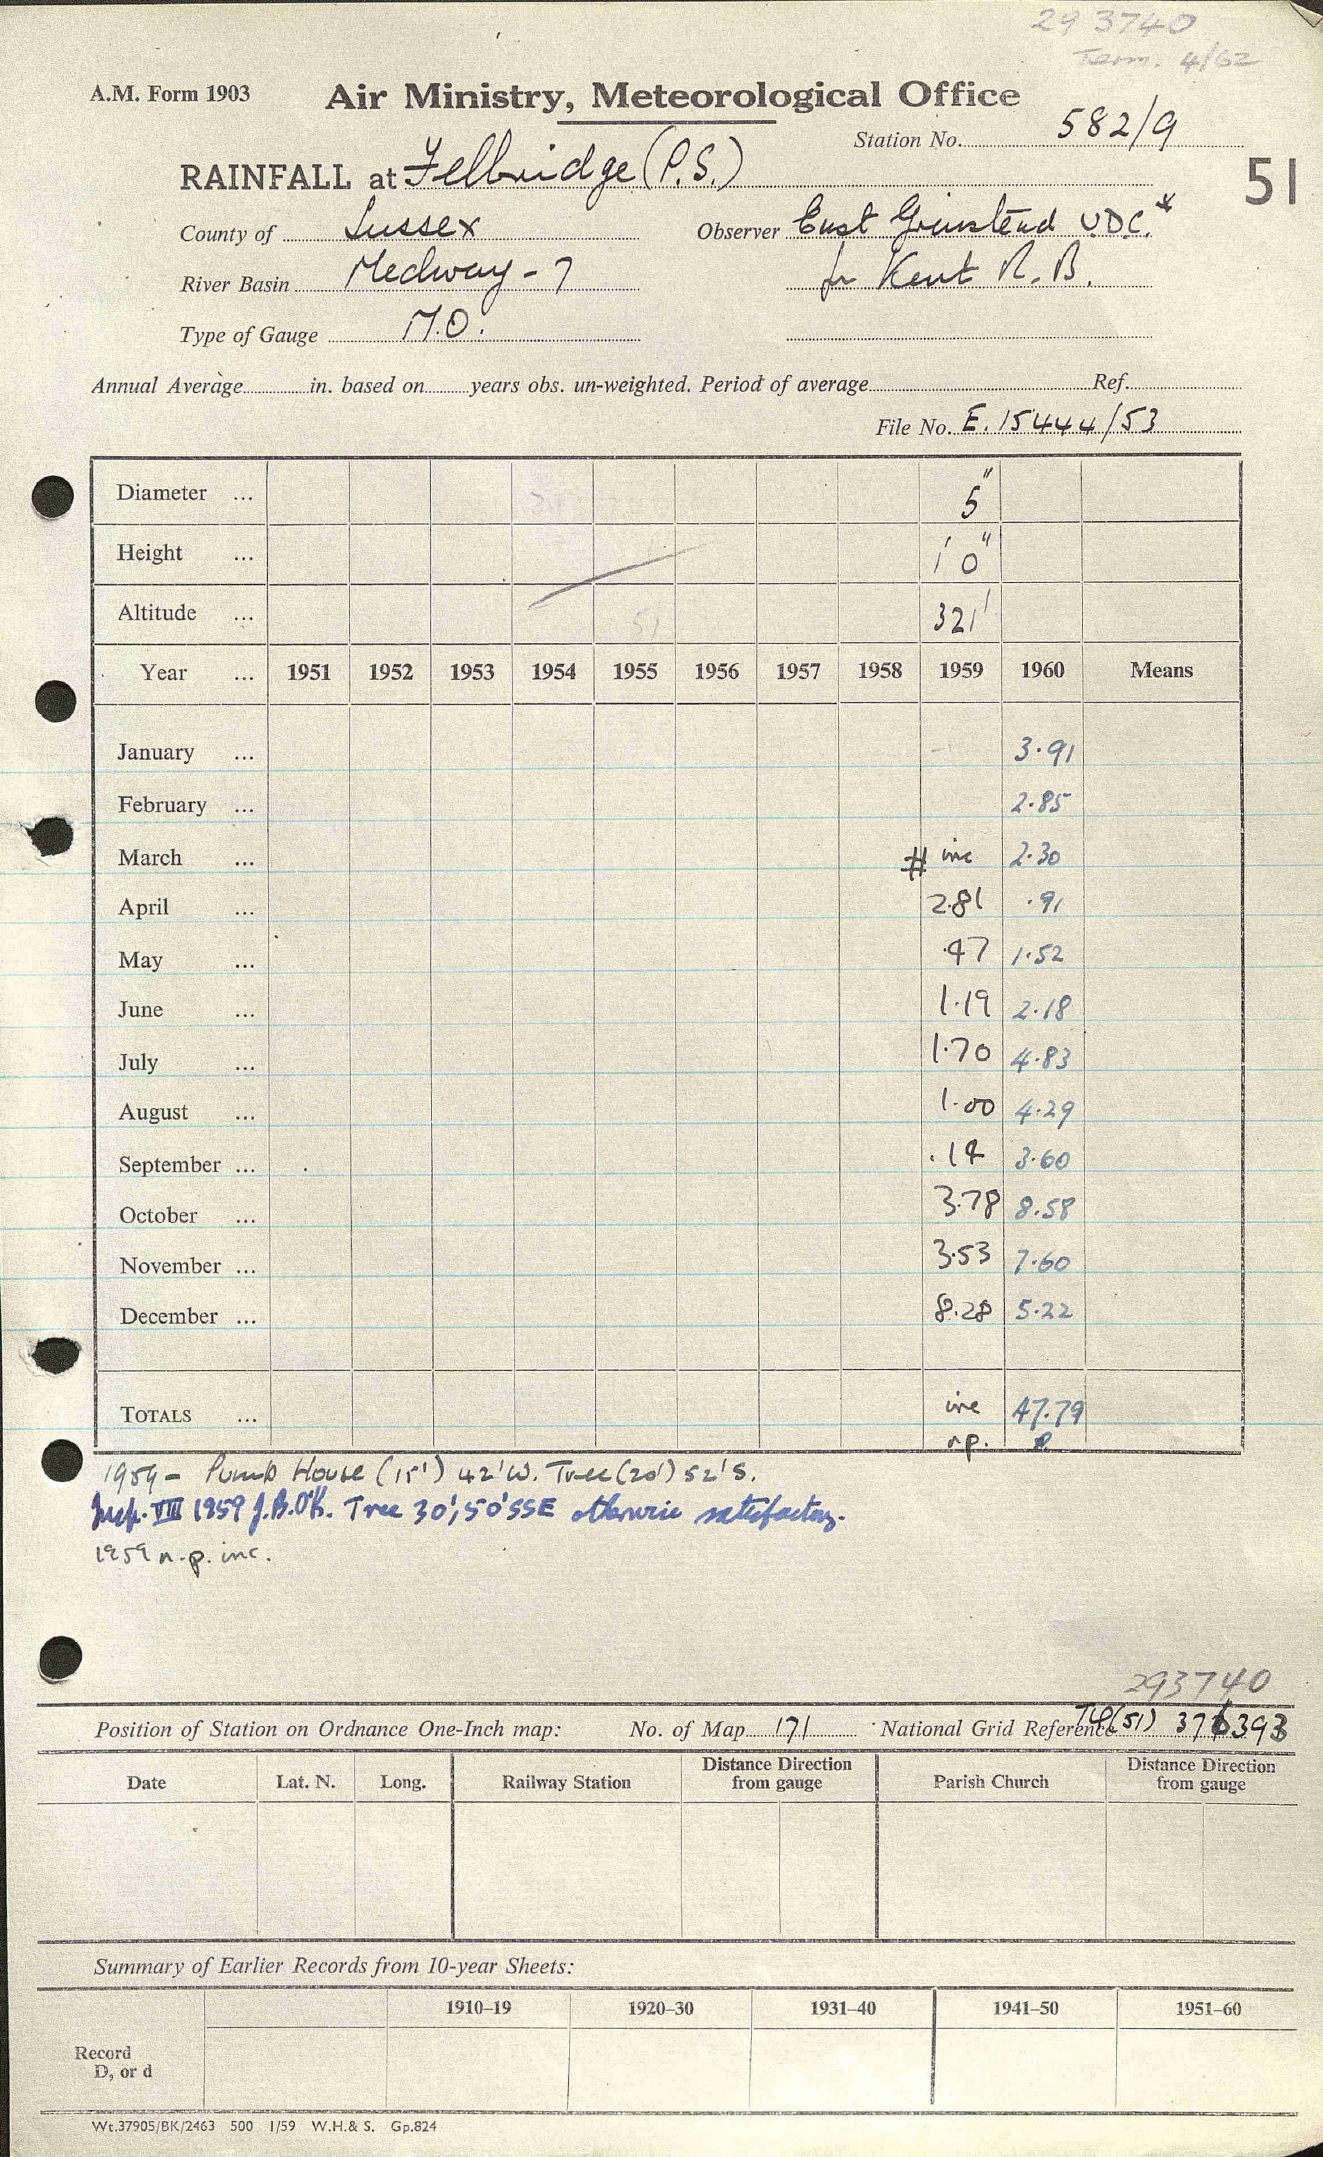 29 3740
Term. 4/62
A.M. Form 1903 Air Ministry, Meteorological Office
Station No. 582/9
RAINFALL at Felbridge (P.S.)
51
County of Sussex Observer East Grinstead UDC.*
River Basin Medway - 7 for Kent R.B.
Type of Gauge M.O.
Annual Average in. based on years obs. un-weighted. Period of average Ref.
File No. E.15444/53
Diameter ... 5"
Height ... 1' 0"
Altitude ... 321'
51
Year ... 1951 1952 1953 1954 1955 1956 1957 1958 1959 1960 Means
January ... - 3.91
February ... 2.85
March ... # inc 2.30
April ... 2.81 .91
May ... .47 1.52
June ... 1.19 2.18
July ... 1.70 4.83
August ... 1.00 4.29
September ... .14 3.60
October ... 3.78 8.58
November ... 3.53 7.60
December ... 8.28 5.22
TOTALS ... inc 47.79
n.p. P.
1959 - Pump House (15') 42'W. Tree (20') 52'S.
Insp. VIII 1959 J.B.O'K. Tree 30', 50'SSE otherwise satisfactory.
1959 n.p. inc.
293740
Position of Station on Ordnance One-Inch map: No. of Map 171 National Grid Reference TQ(51) 376393
Date Lat. N. Long. Railway Station Distance Direction from gauge Parish Church Distance Direction from gauge
Summary of Earlier Records from 10-year Sheets:
1910–19 1920–30 1931–40 1941–50 1951–60
Record
D, or d
Wt.37905/BK/2463 500 1/59 W.H.& S. Gp.824